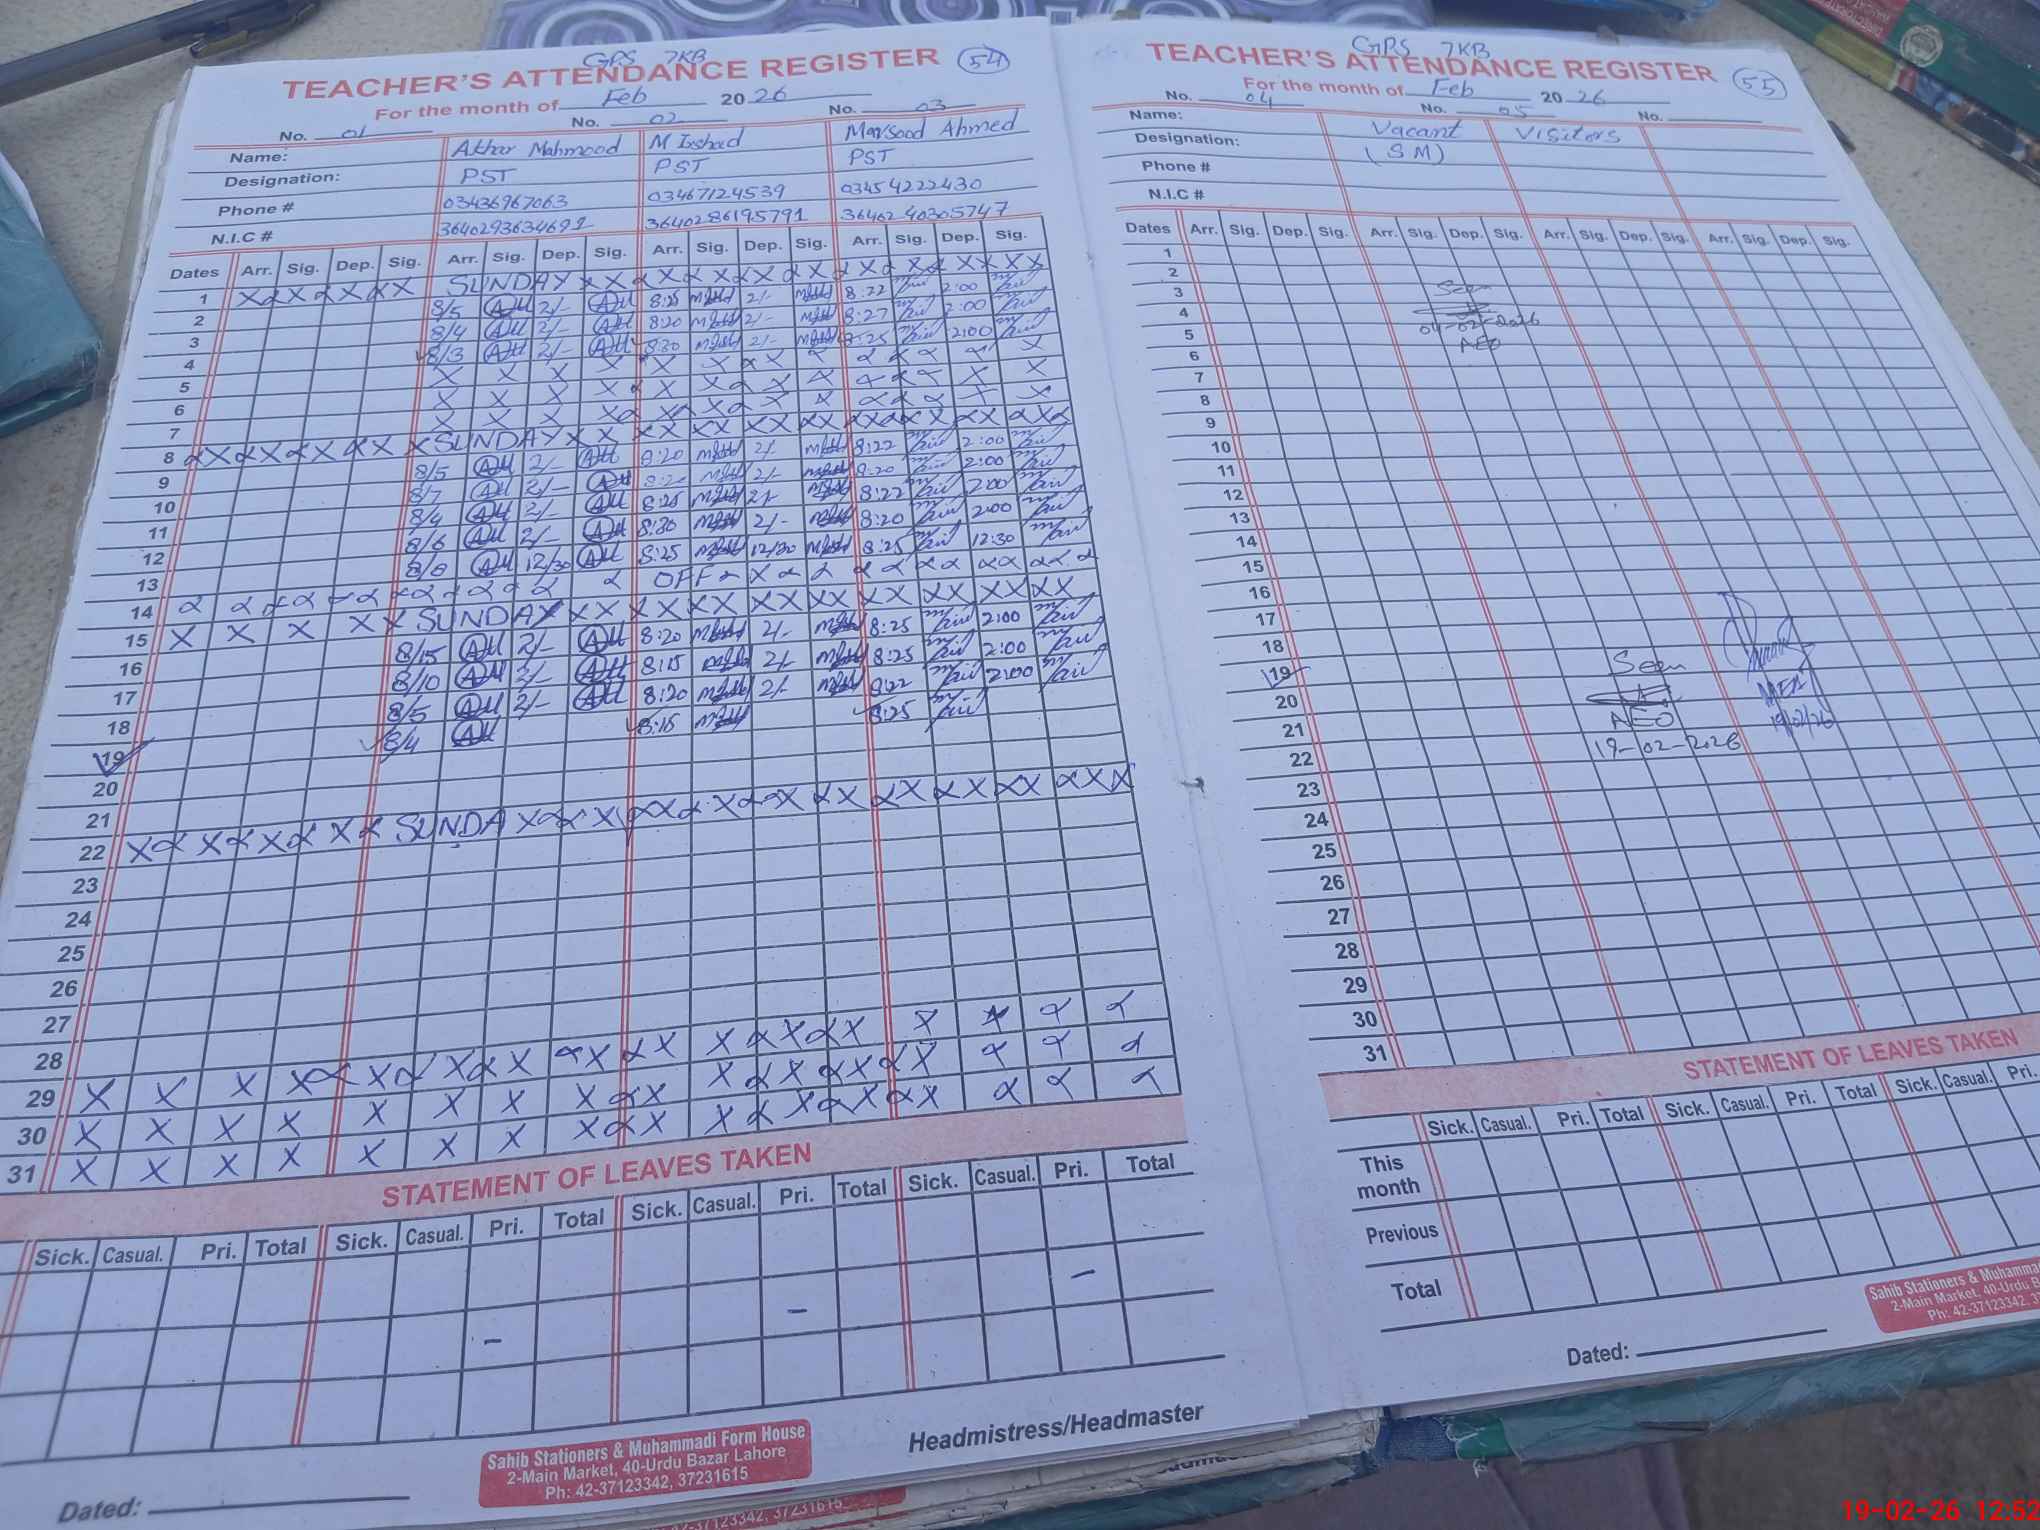 GPS 7KB
TEACHER'S ATTENDANCE REGISTER 54
For the month of Feb 2026
No. 01 No. 02 No. 03
Name: Akhar Mahmood M Irshad Maqsood Ahmed
Designation: PST PST PST
Phone # 03436967063 03467124539 03454222430
N.I.C # 3640293634691 3640286195791 3640240305747
Dates Arr. Sig. Dep. Sig. Arr. Sig. Dep. Sig. Arr. Sig. Dep. Sig. Arr. Sig. Dep. Sig.
1 SUNDAY
2 8/5 2/- 8:25 2/- 8:22 2:00
3 8/4 2/- 8:20 2/- 8:27 2:00
4 8/3 2/- 8:30 2/- 8:25 2:00
5
6
7
8 SUNDAY
9 8/5 2/- 8:20 2/- 8:22 2:00
10 8/7 2/- 8:20 2/- 8:20 2:00
11 8/4 2/- 8:25 2/- 8:22 2:00
12 8/6 2/- 8:20 2/- 8:20 2:00
13 8/8 12/30 8:25 12/30 8:25 12:30
14 OFF
15 SUNDAY
16 8/15 2/- 8:20 2/- 8:25 2:00
17 8/10 2/- 8:15 2/- 8:25 2:00
18 8/5 2/- 8:20 2/- 8:22 2:00
19 8/4 8:15 8:25
20
21
22 SUNDA
23
24
25
26
27
28
29
30
31
STATEMENT OF LEAVES TAKEN
Sick. Casual. Pri. Total Sick. Casual. Pri. Total Sick. Casual. Pri. Total Sick. Casual. Pri. Total
Headmistress/Headmaster
Sahib Stationers & Muhammadi Form House
2-Main Market, 40-Urdu Bazar Lahore
Ph: 42-37123342, 37231615
Dated:
37123342, 37231615
GPS 7KB
TEACHER'S ATTENDANCE REGISTER 55
For the month of Feb 2026
No. 04 No. 05 No.
Name: Vacant Visitors
Designation: (SM)
Phone #
N.I.C #
Dates Arr. Sig. Dep. Sig. Arr. Sig. Dep. Sig. Arr. Sig. Dep. Sig. Arr. Sig. Dep. Sig.
1
2
3 Seen
4
5 04-02-2026
6 AEO
7
8
9
10
11
12
13
14
15
16
17
18
19 Seen
20
21 AEO 19/02/26
22 19-02-2026
23
24
25
26
27
28
29
30
31
STATEMENT OF LEAVES TAKEN
Sick. Casual. Pri. Total Sick. Casual. Pri. Total Sick. Casual. Pri.
This month
Previous
Total
Sahib Stationers & Muhammad
2-Main Market, 40-Urdu B
Ph: 42-37123342, 3
Dated:
19-02-26 12:52